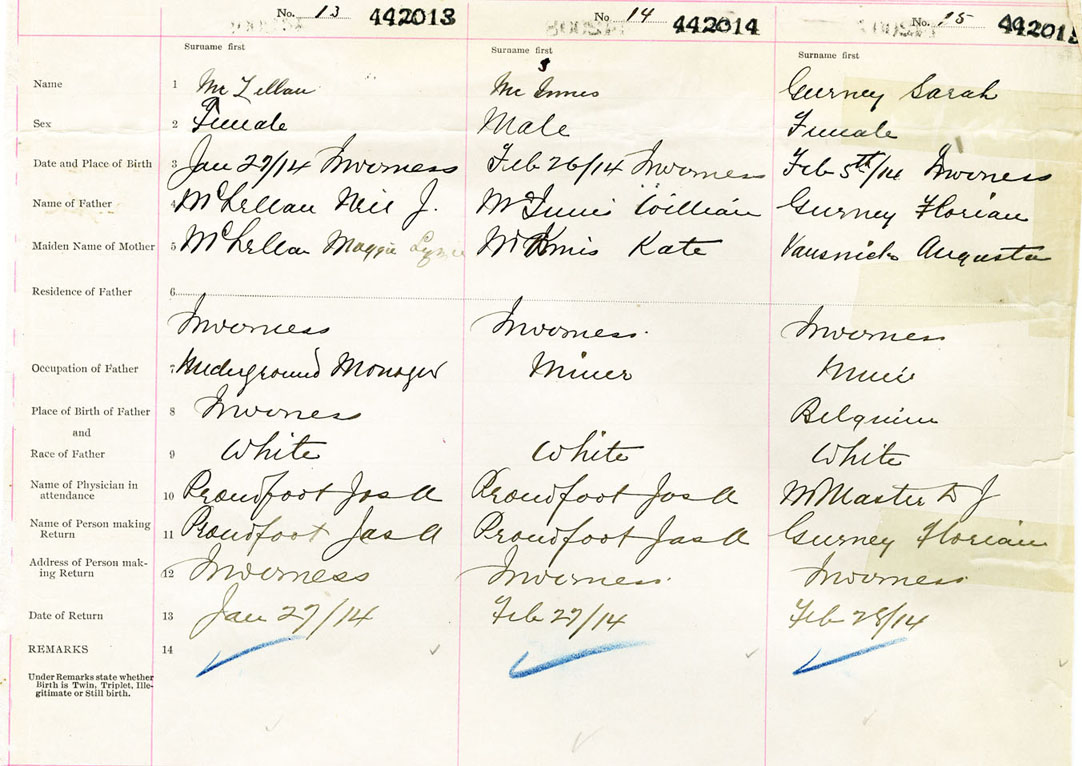 No. 13 442013 No 14 442014 No. 15 442015
Surname first Surname first Surname first
Name 1 Mc Lellan Mc Innis Gurney Sarah
Sex 2 Female Male Female
Date and Place of Birth 3 Jan 27/14 Inverness Feb 26/14 Inverness Feb 5th/14 Inverness
Name of Father 4 McLellan Neil J. McInnis William Gurney Florian
Maiden Name of Mother 5 McLellan Maggie Kate Augusta
Residence of Father 6
Inverness Inverness. Inverness
Occupation of Father 7 Underground Manager Miner Miner
Place of Birth of Father 8 Inverness Belguim
and
Race of Father 9 White White White
Name of Physician in
attendance 10 Proudfoot Jas A Proudfoot Jas A McMaster D J
Name of Person making
Return 11 Proudfoot Jas A Proudfoot Jas A Gurney Florian
Address of Person mak-
ing Return 12 Inverness Inverness. Inverness.
Date of Return 13 Jan 27/14 Feb 27/14 Feb 28/14
REMARKS 14
Under Remarks state whether
Birth is Twin, Triplet, Ille-
gitimate or Still birth.